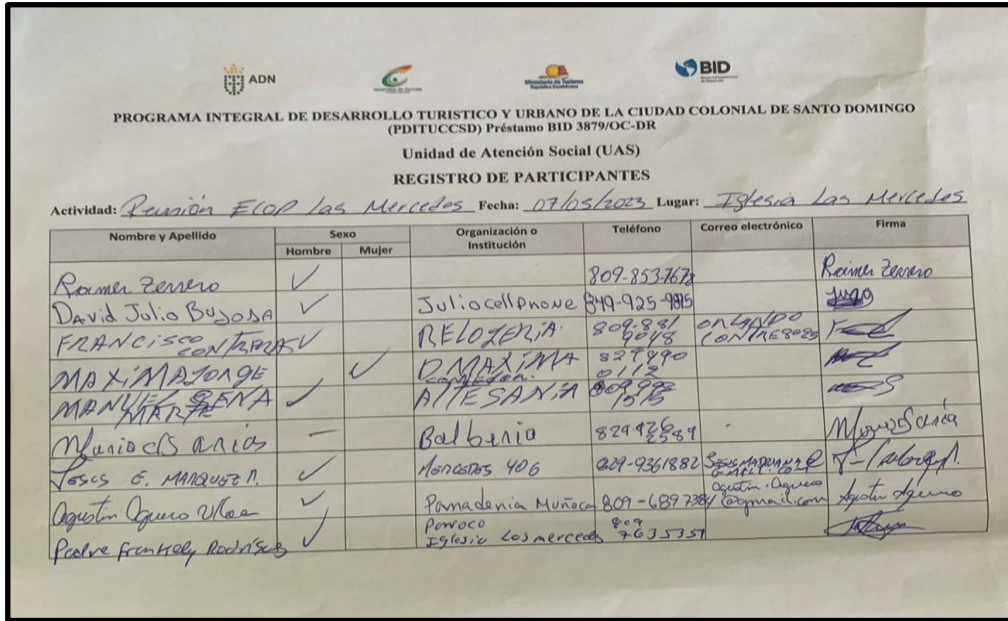 ADN
MINISTERIO DE CULTURA
Ministerio de Turismo
República Dominicana
BID
PROGRAMA INTEGRAL DE DESARROLLO TURISTICO Y URBANO DE LA CIUDAD COLONIAL DE SANTO DOMINGO
(PDITUCCSD) Préstamo BID 3879/OC-DR
Unidad de Atención Social (UAS)
REGISTRO DE PARTICIPANTES
Actividad: Reunión ECOP Las Mercedes Fecha: 07/05/2023 Lugar: Iglesia Las Mercedes
Nombre y Apellido Sexo Organización o Institución Teléfono Correo electrónico Firma
Hombre Mujer
Ramer Zerrero 809-853-7678 Ramer Zerrero
David Julio Bujosa Juliocellphone 849-925-9815
FRANCISCO CONTRERAS RELOJERIA 809-881 9048
MAXIMA JORGE D. MAXIMA comedor 829 490 0112
MANUEL MARTE ARTESANIA
Balberia 829 926 2589
Jesus E. MARQUEZ R. MERCEDES 406 829-9361882
Agustin Aquero Panaderia Muñeca 809-6897384 @gmail.com Agustin Aquero
Padre Frankely Rodríguez Parroco Iglesia Las mercedes 809 7635351